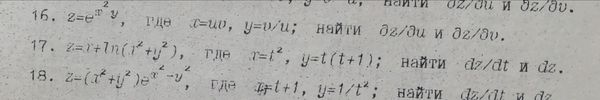 найти ∂z/∂u и ∂z/∂v.
16. z=e^{x²y}, где x=uv, y=v/u; найти ∂z/∂u и ∂z/∂v.
17. z=x+ln(x²+y²), где x=t², y=t(t+1); найти dz/dt и dz.
18. z=(x²+y²)e^{x²-y²}, где x=t+1, y=1/t²; найти dz/dt и dz